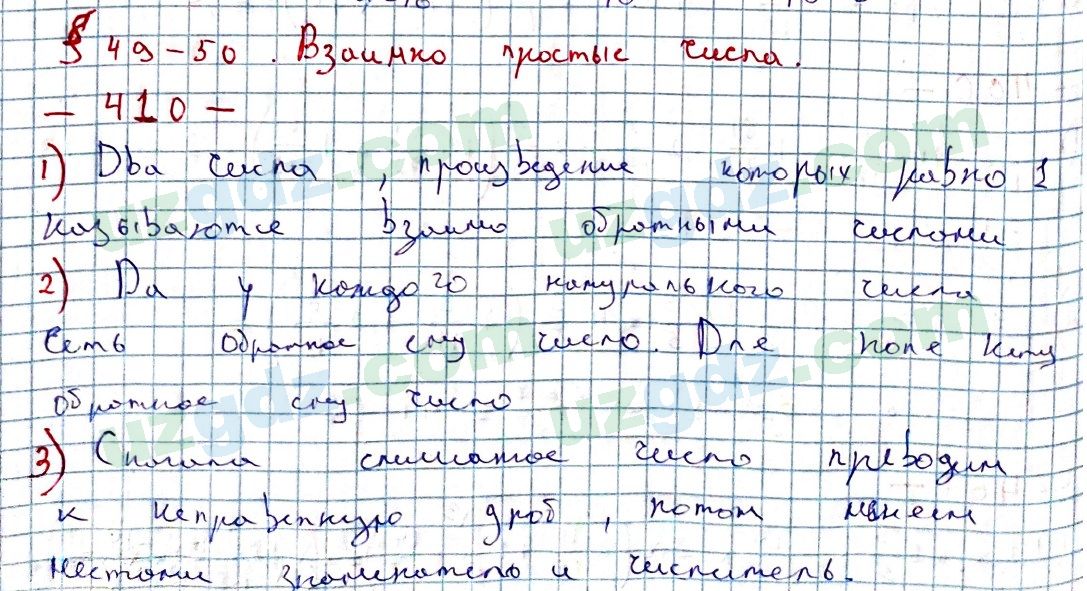 § 49-50. Взаимно простые числа.
— 410 —
1) Два числа, произведение которых равно 1
называются взаимо обратными числами
2) Да у каждого натурального числа
есть обратное ему число. Для ноля нету
обратное ему число
3) Сначала смешаное число преводим
к неправильную дроб, потом меняем
местами знаменатель и числитель.
uzgdz.com
uzgdz.com
uzgdz.com
uzgdz.com